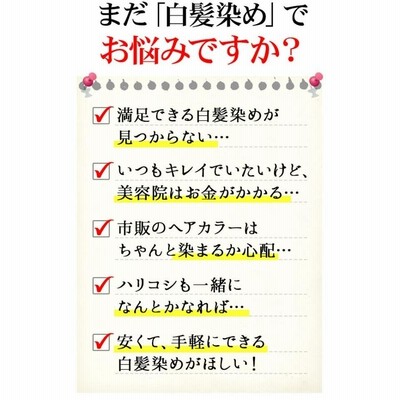 まだ「白髪染め」で
お悩みですか？
満足できる白髪染めが
見つからない…
いつもキレイでいたいけど、
美容院はお金がかかる…
市販のヘアカラーは
ちゃんと染まるか心配…
ハリコシも一緒に
なんとかなれば…
安くて、手軽にできる
白髪染めがほしい！